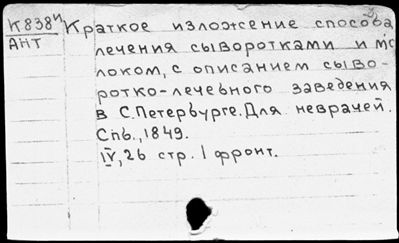 К838и Краткое изложение способа
АНТ лечения сыворотками и мо-
локом, с описанием сыво-
ротко-лечебного заведения
в С.Петербурге. Для неврачей.
Спб., 1849.
IV, 26 стр. 1 фронт.